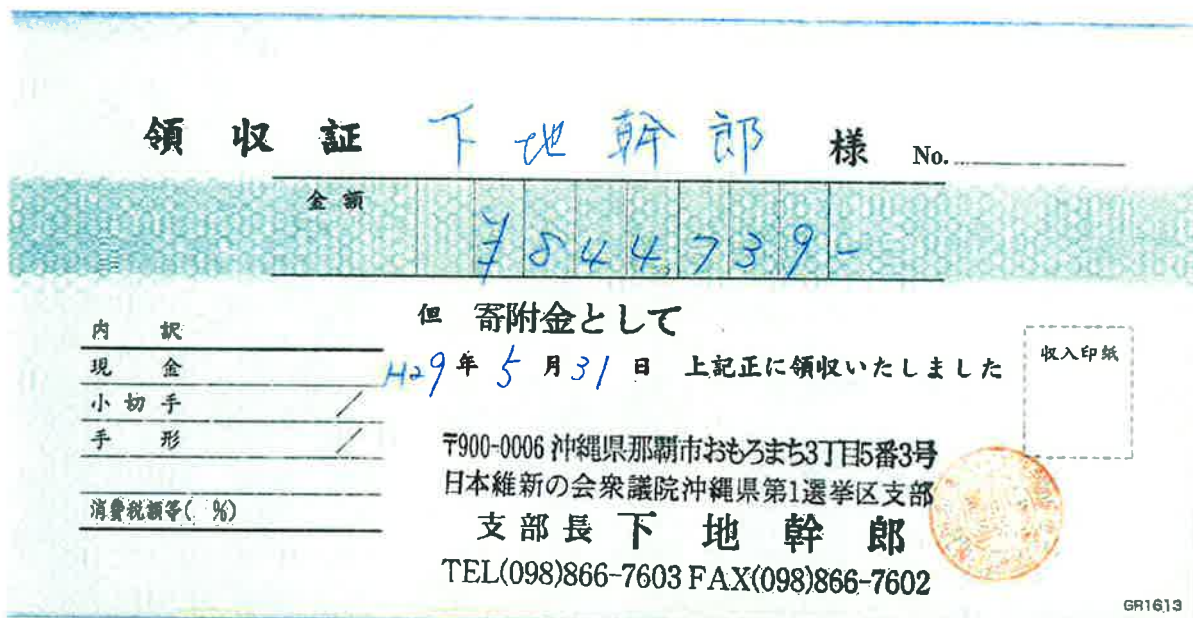 領収証 下地幹郎 様 No.
金額
¥844,739-
但 寄附金として
内訳
現金
H29年5月31日 上記正に領収いたしました
収入印紙
小切手
手形
〒900-0006 沖縄県那覇市おもろまち3丁目5番3号
日本維新の会衆議院沖縄県第1選挙区支部
消費税額等( %)
支部長 下地幹郎
TEL(098)866-7603 FAX(098)866-7602
GR1613